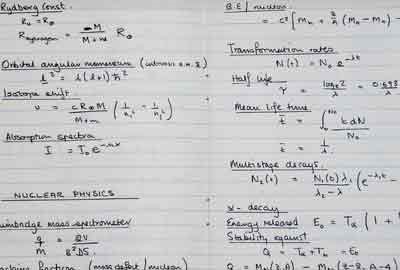 Rydberg Const.
R₀ = R∞
R_hydrogen = M / (M + m) R∞
Orbital angular momentum
l² = l(l+1)ħ²
Isotope shift.
ν = c R∞ M / (M + m) (1/n₁² - 1/n₂²)
Absorption spectra
I = I₀ e
NUCLEAR PHYSICS
mass spectrometer
q/m = 2V / B²DS
fraction (mass defect/nucleon)
B.E / nucleon
= c² [M_n + Z/A (M_H - M_n) -
Transformation rates
N(t) = N₀ e^-λt
Half life
τ = log_e 2 / λ = 0.693 / λ
Mean life time
t̄ = ∫ t dN / N₀
t̄ = 1/λ
Multistage decays.
N₂(t) = N₁(0) λ₁ / (λ₂ - λ₁) (e^-λ₁t -
α - decay
Energy released E₀ = Tα (1 +
Stability against
Q = Tα + T_b = E₀
Q = M (Z,A) - M (Z-2, A-4)